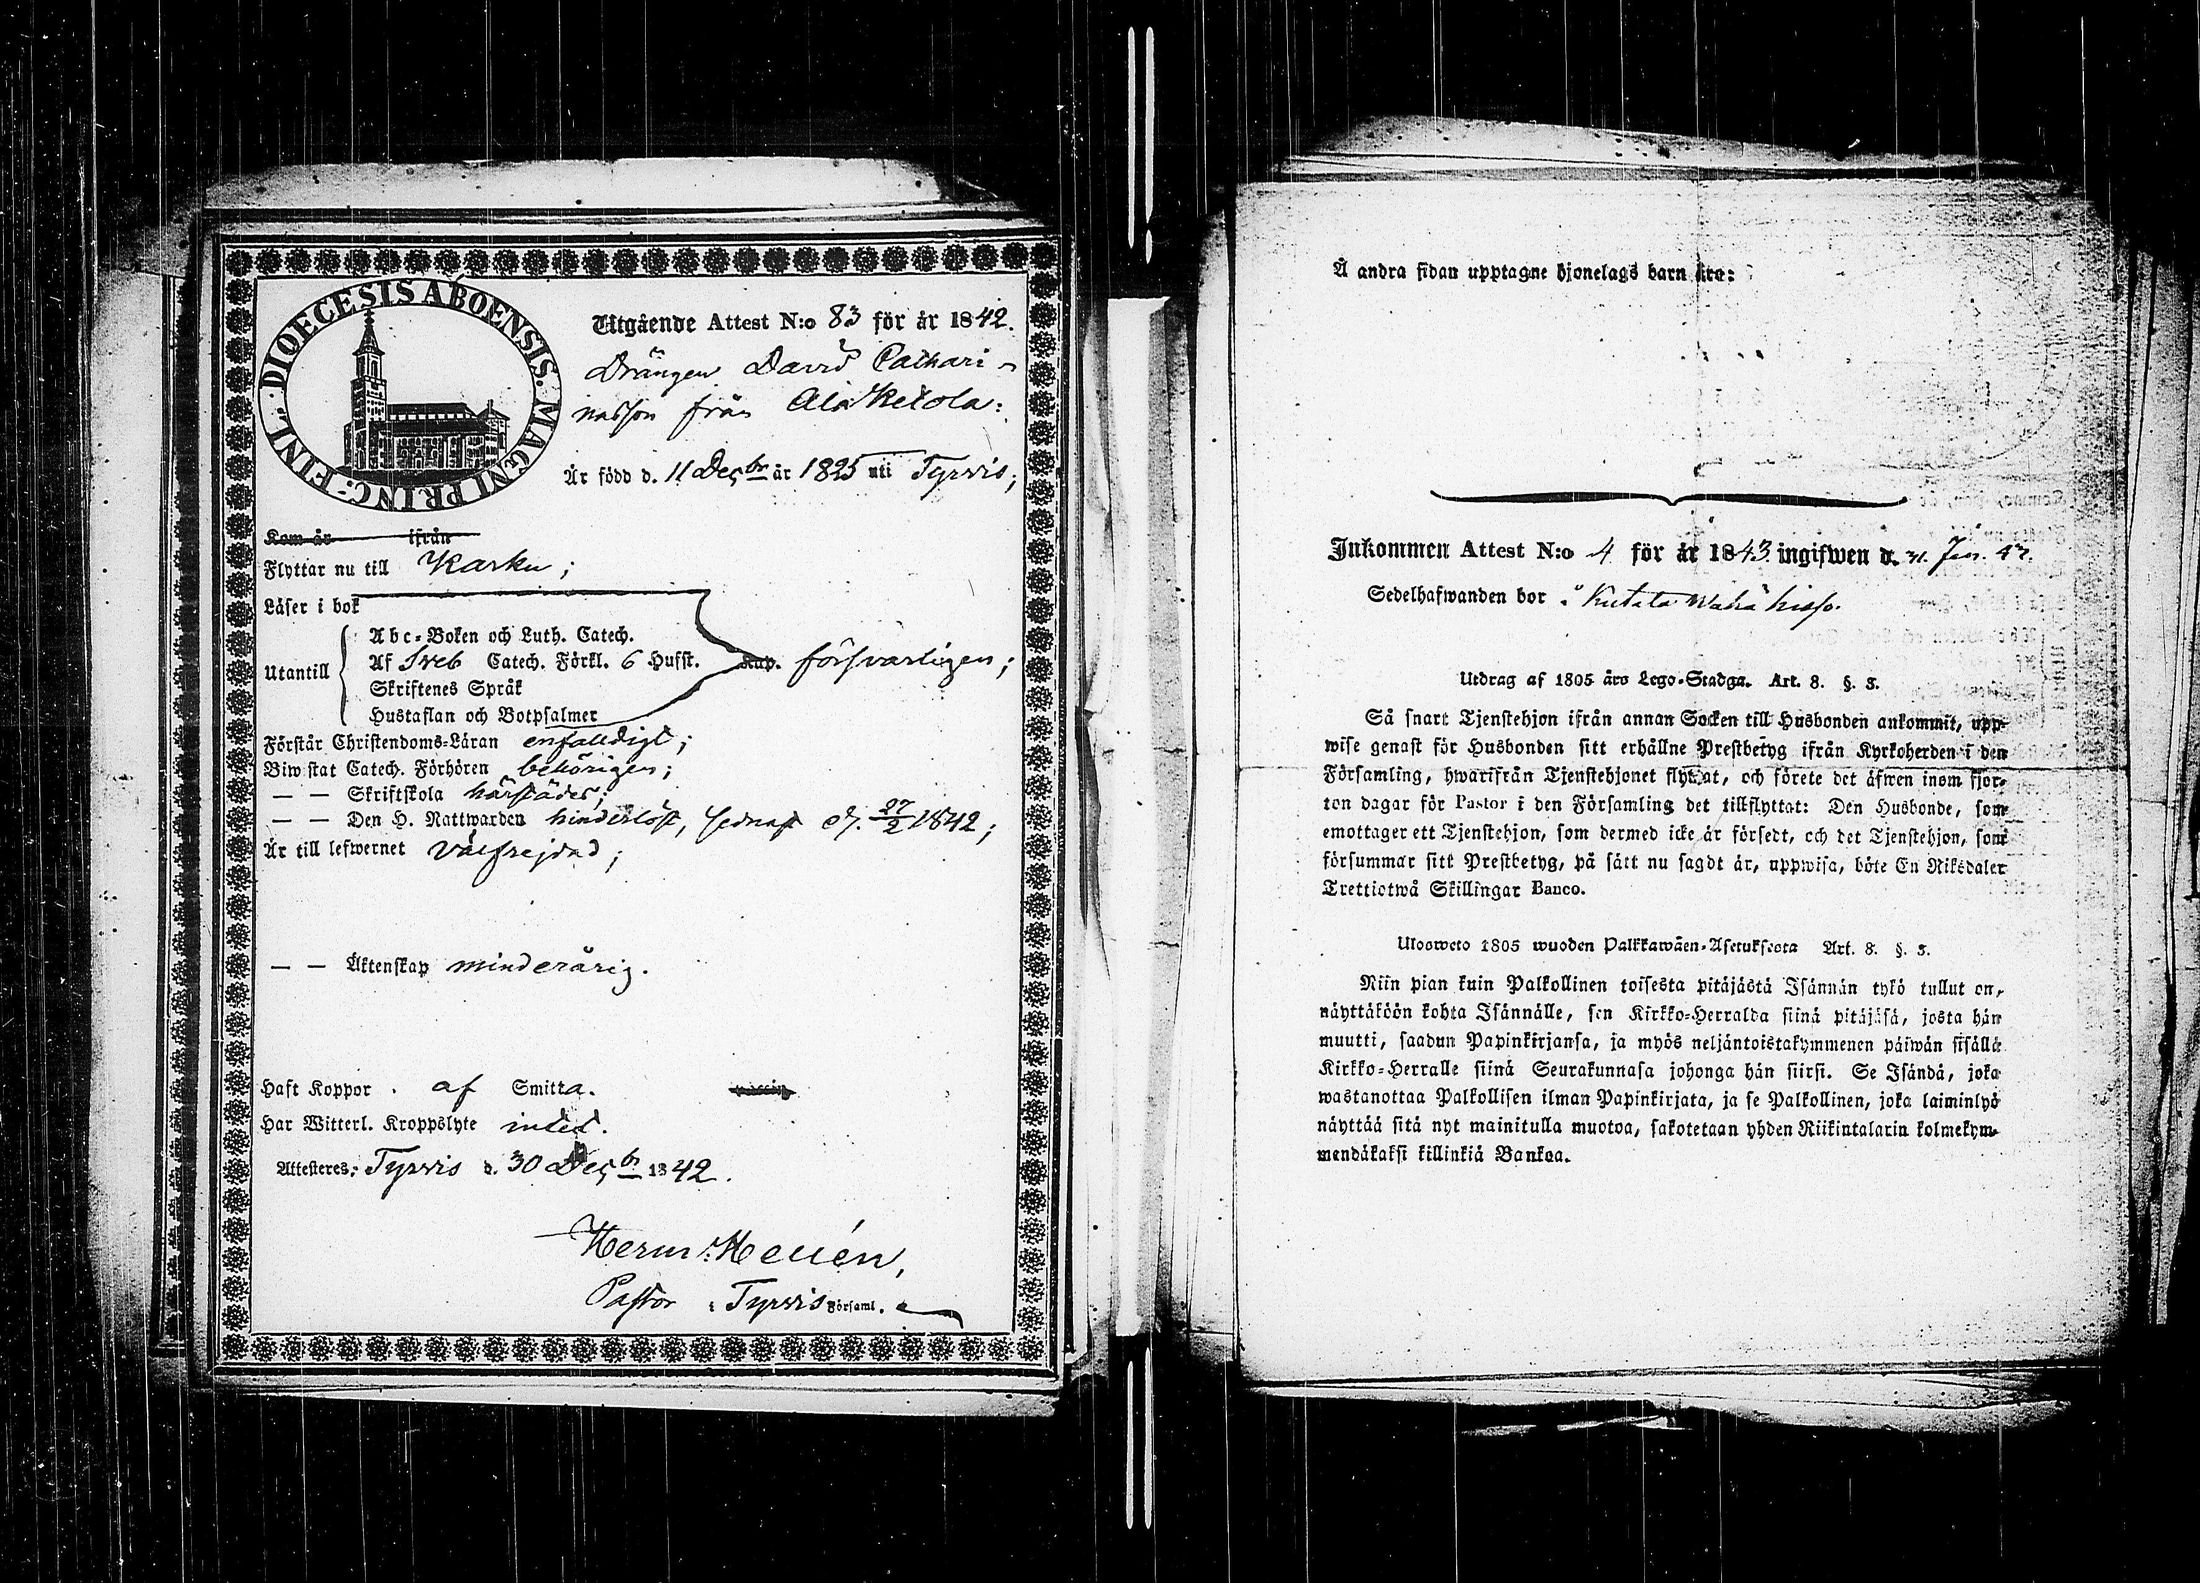 DIOECESIS ÅBOENSIS. MAGNI PRINC: FINL.
Utgående Attest N:o 83 för år 1842.
Drängen David Cathari-
nasson från Ala Ketola:
Är född d. 11 Decbr år 1825 uti Tyrvis;
Kom år ifrån
Flyttar nu till Karku;
Läser i bok
Utantill
Abc-Boken och Luth. Catech.
Af Sveb Catech. Förkl. 6 Hufst. Kap. försvarligen;
Skriftenes Språk
Hustaflan och Botpsalmer
Förstår Christendoms-Läran enfaldigt;
Biwistat Catech. Förhören behörigen;
— — Skriftskola härstädes;
— — Den H. Nattwarden hinderlöst, sednast d. 27/2 1842;
Är till lefwernet välfrejdad;
— — Äktenskap minderårig.
Haft Koppor af Smitta.
Har Witterl. Kroppslyte intet.
Attesteres; Tyrvis d. 30 Decbr 1842.
Herm: Hellén,
Pastor i Tyrvis Församl.
Å andra sidan upptagne hjonelags barn äro:
Inkommen Attest N:o 4 för år 1843 ingifwen d. 31. Jan. 43.
Sedelhafwanden bor å Kutala Wähä hiisso.
Utdrag af 1805 års Lego-Stadga. Art. 8. §. 3.
Så snart Tjenstehjon ifrån annan Socken till Husbonden ankommit, upp-
wise genast för Husbonden sitt erhållne Prestbetyg ifrån Kyrkoherden i den
Församling, hwarifrån Tjenstehjonet flyttat, och förete det äfwen inom fjor-
ton dagar för Pastor i den Församling det tillflyttat: Den Husbonde, som
emottager ett Tjenstehjon, som dermed icke är försedt, och det Tjenstehjon, som
försummar sitt Prestbetyg, på sätt nu sagdt är, uppwisa, böte En Riksdaler
Trettiotwå Skillingar Banco.
Ulosweto 1805 wuoden Palkkawäen-Asetuksesta Art. 8. §. 3.
Niin pian kuin Palkollinen toisesta pitäjästä Isännän tykö tullut on,
näyttäköön kohta Isännälle, sen Kirkko-Herralda siinä pitäjäsä, josta hän
muutti, saadun Papinkirjansa, ja myös neljäntoistakymmenen päiwän sisällä
Kirkko-Herralle siinä Seurakunnasa johonga hän siirsi. Se Isändä, joka
wastanottaa Palkollisen ilman Papinkirjata, ja se Palkollinen, joka laiminlyö
näyttää sitä nyt mainitulla muotoa, sakotetaan yhden Riikintalarin kolmekym-
mendäkaksi killinkiä Bankoa.